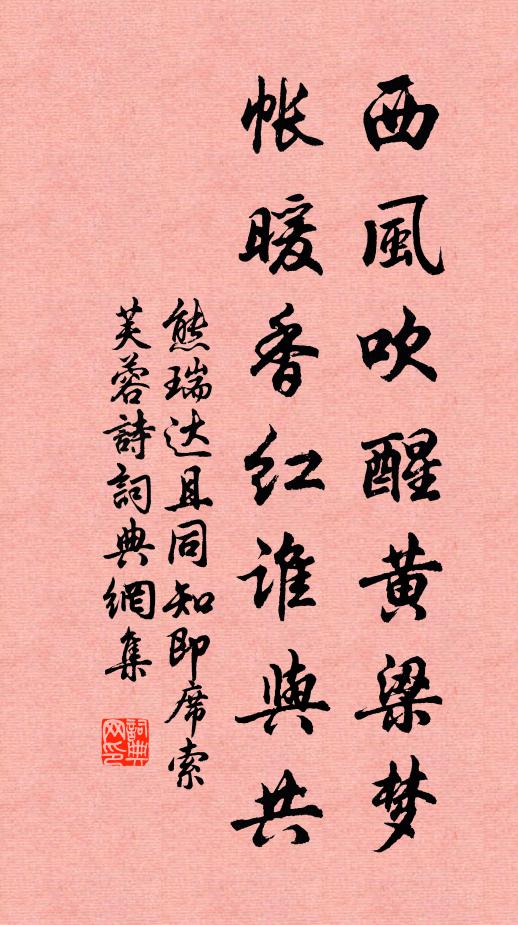 西風吹醒黄梁梦
帐暖香红谁與共
熊瑞达且同知即席索
芙蓉詩詞典網集
詞典网印